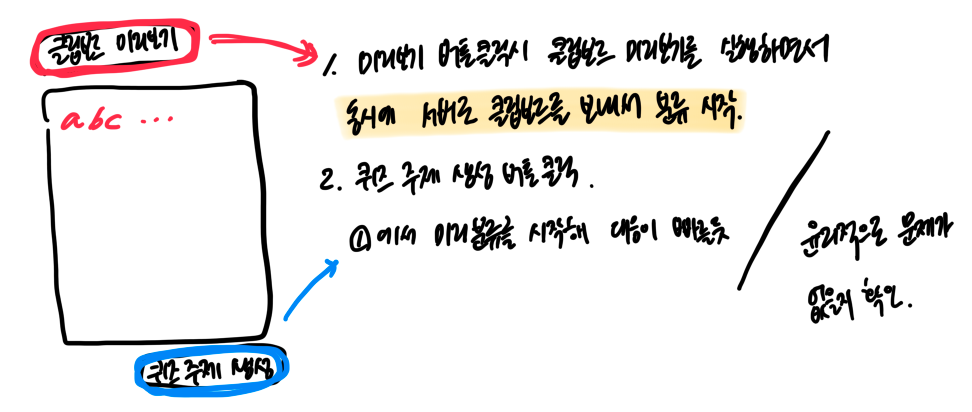 클립보드 미리보기
abc ...
1. 미리보기 버튼클릭시 클립보드 미리보기를 실행하면서
동시에 서버로 클립보드를 보내서 분류 시작.
2. 퀴즈 주제 생성 버튼클릭.
①에서 미리분류를 시작해 대응이 빠를듯
윤리적으로 문제가
없을지 확인.
퀴즈 주제 생성